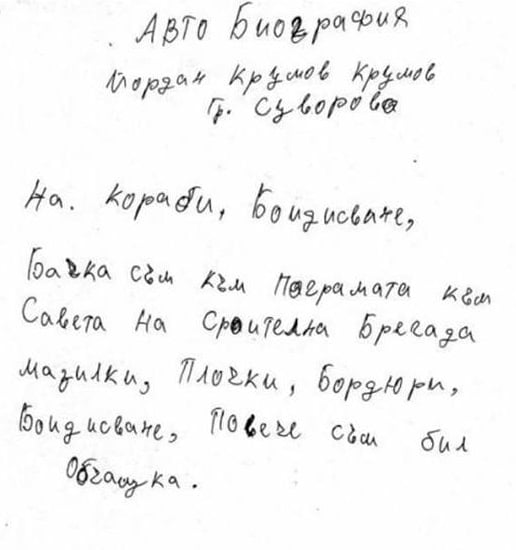 Авто Биография
Йордан Крумов Крумов
Гр. Суворово
На. Кораби, Боидисване,
Бачка съм към Пограмата към
Савета на Сроителна Брегада
мазилки, Плочки, Бордюри,
Боидисване, Повече съм бил